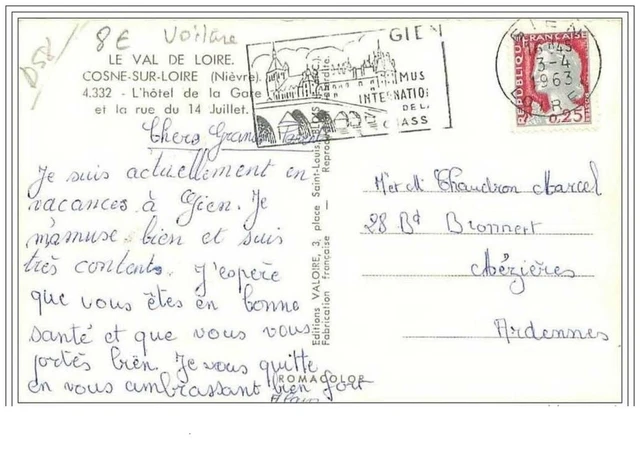 8€ Voilare
D58
LE VAL DE LOIRE.
COSNE-SUR-LOIRE (Nièvre).
4.332 - L'hôtel de la Gare
et la rue du 14 Juillet.
GIEN
MUS
INTERNATIO
DE L
CHASS
GIEN
15 H 45
3-4
1963
LOIRET
REPUBLIQUE FRANÇAISE
0,25
Chers Grands Parents
Je suis actuellement en
vacances à Gien. Je
m'amuse bien et suis
très contente. J'espère
que vous êtes en bonne
santé et que vous vous
portés bien. Je vous quitte
en vous ambrassant bien fort
Alain
Editions VALOIRE, 3, place Saint-Louis, BLOIS
Fabrication française - Reproduction interdite.
ROMACOLOR
Mr et Mme Chaudron Marcel
28 Bd Bronnert
Mézières
Ardennes